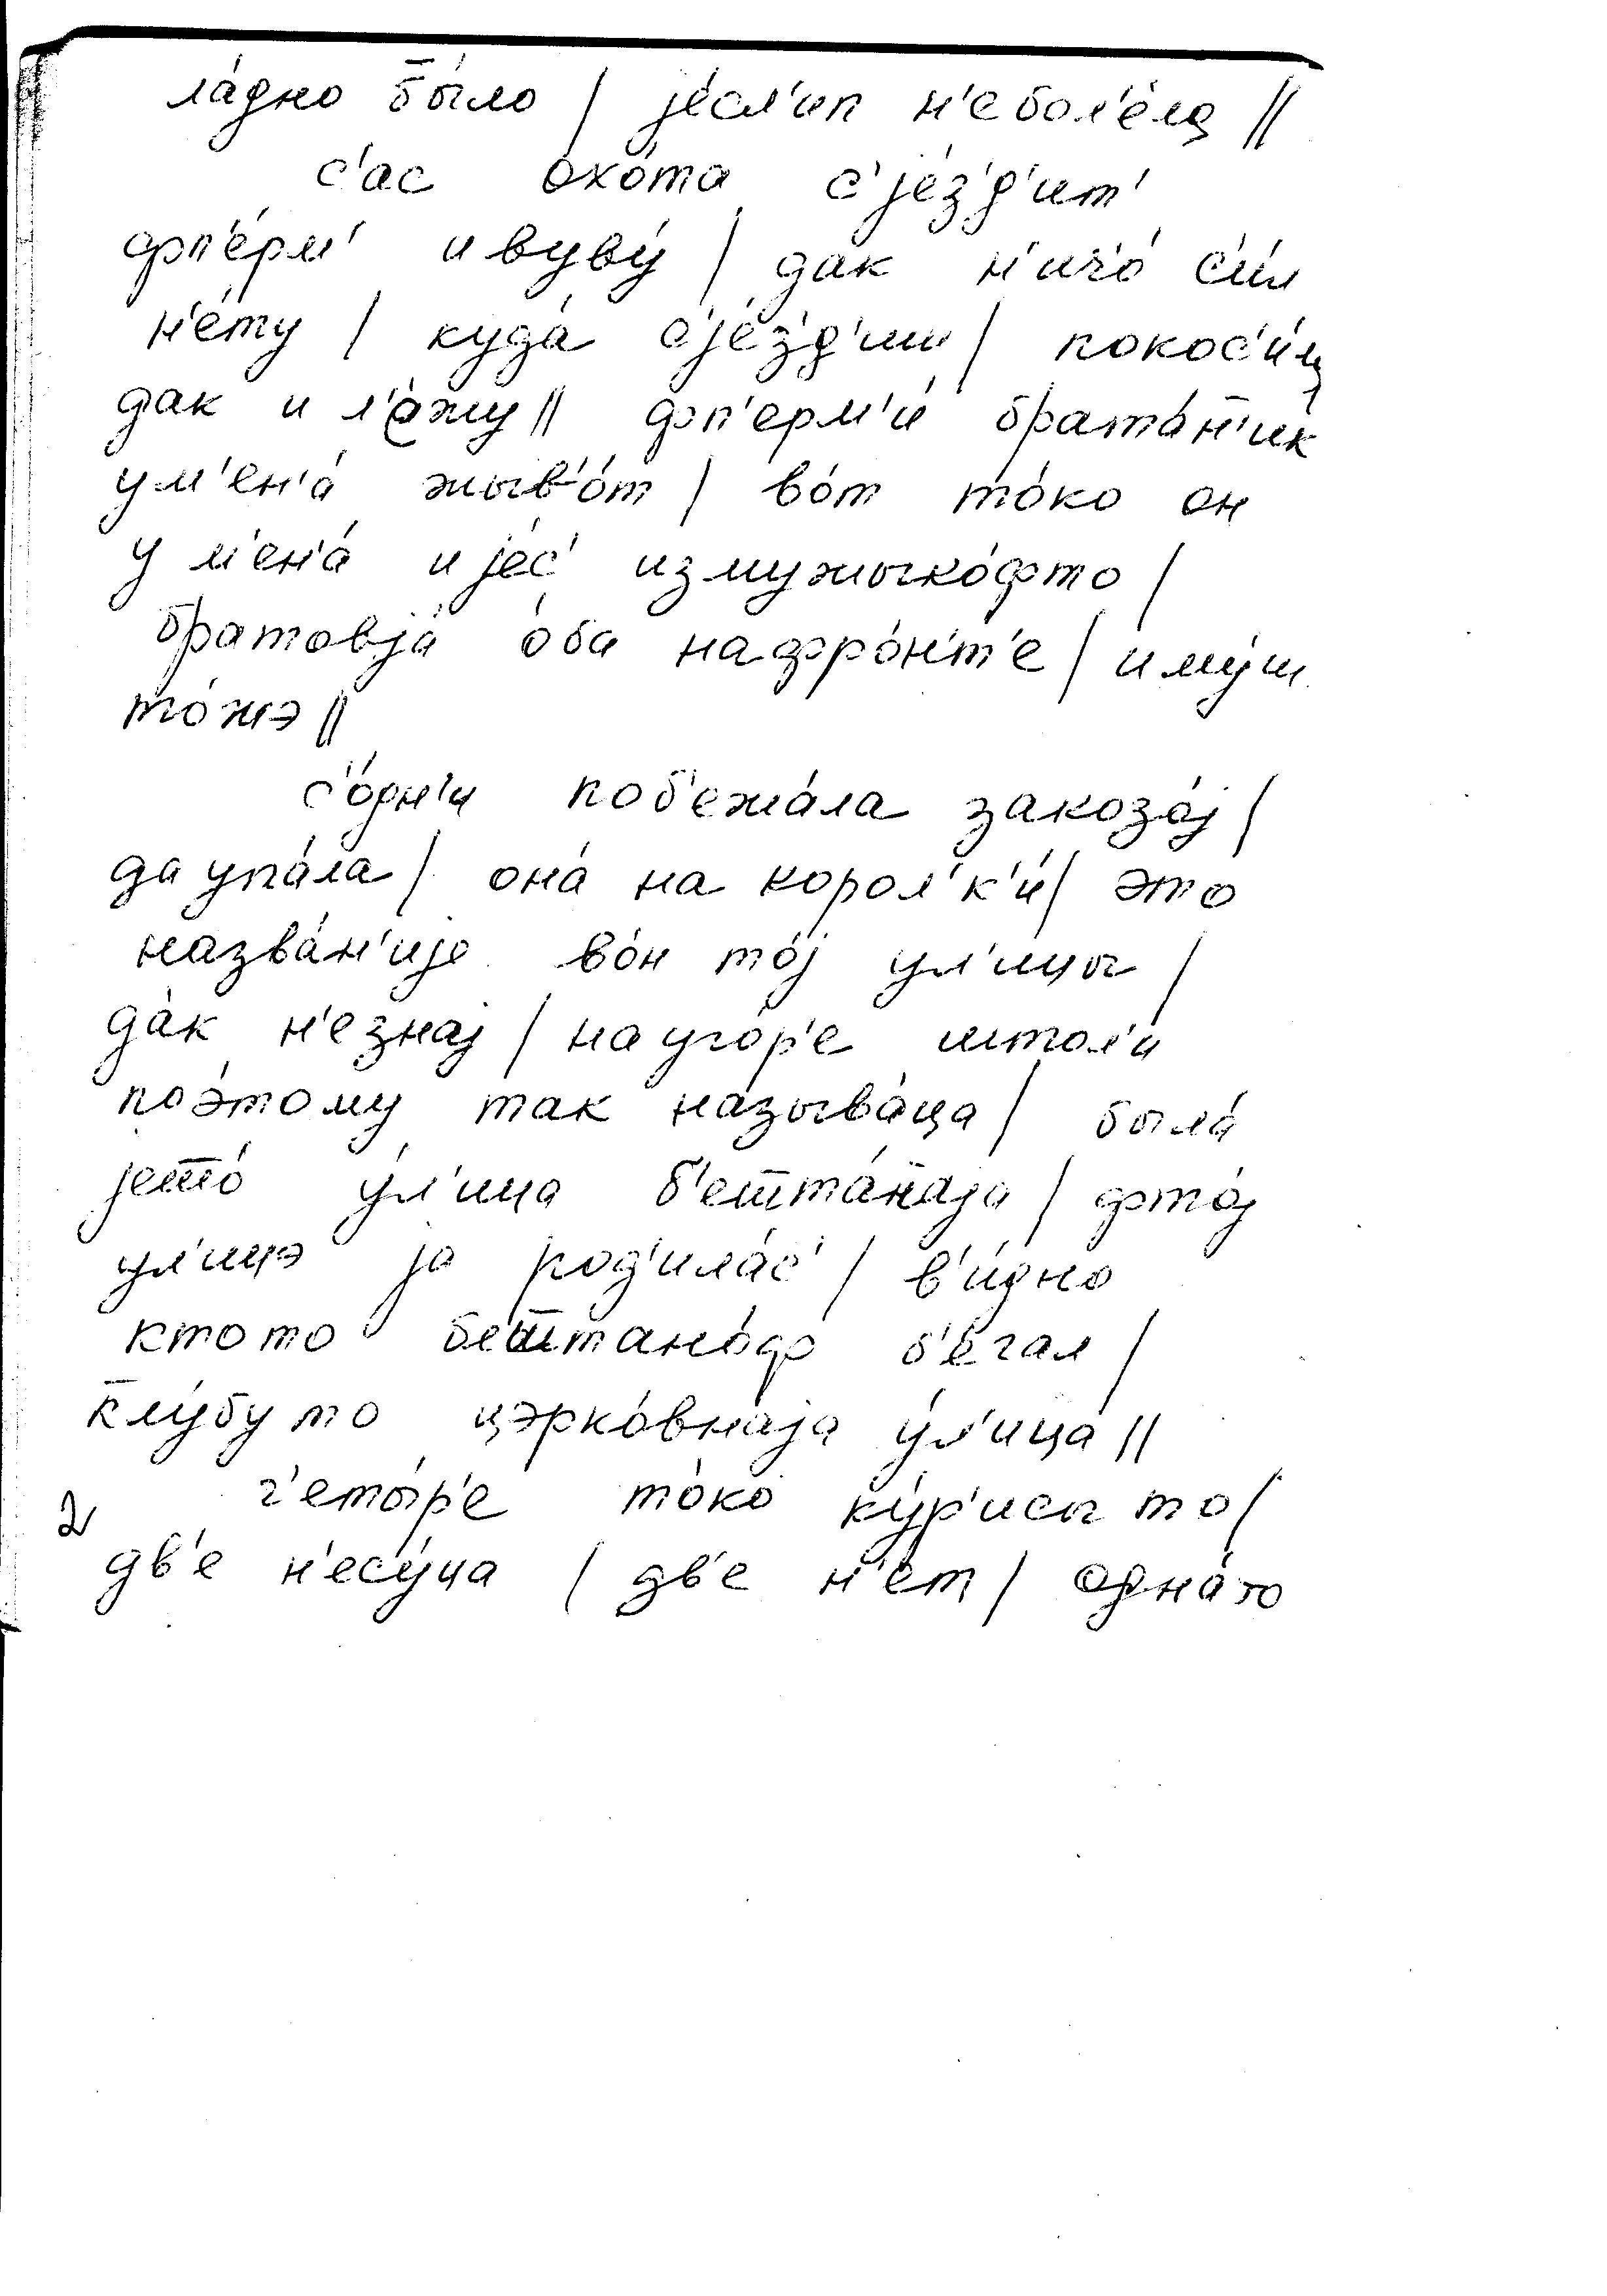 ла́дно бы́ло / је́сл'ип н'ебол'е́ла //
с'ас охо́та с'је́з'д'ит'
фп'е́рм' ивуву́ / дак н'ич'о́ с'и́л
н'е́ту / куда́ с'је́з'д'иш / покос'и́ш
дак и л'ажу // фп'ерм'и́ брата́н'ик
ум'ен'а́ жыв'о́т / во́т то́ко он
у м'ен'а́ и је́с' измужыко́фто /
братовја́ о́ба нафро́н'т'е / и му́ш
то́жэ //
с'о́дн'и поб'ежа́ла закозо́ј /
да упа́ла / она́ на корол'к'и́ / это
назва́н'ије во́н то́ј ул'ицы /
да́к н'езнај / науго́р'е штол'и
поэ́тому так называ́ца / была́
јешо́ у́л'ица б'ешта́наја / фто́ј
ул'ицэ ја род'ила́с' / в'и́дно
ктото бештано́ф б'е́гал /
клу́буто цэрко́внаја у́л'ица //
2 ч'еты́р'е то́ко ку́р'исы то /
дв'е н'есу́ца / дв'е н'ет / одна́то